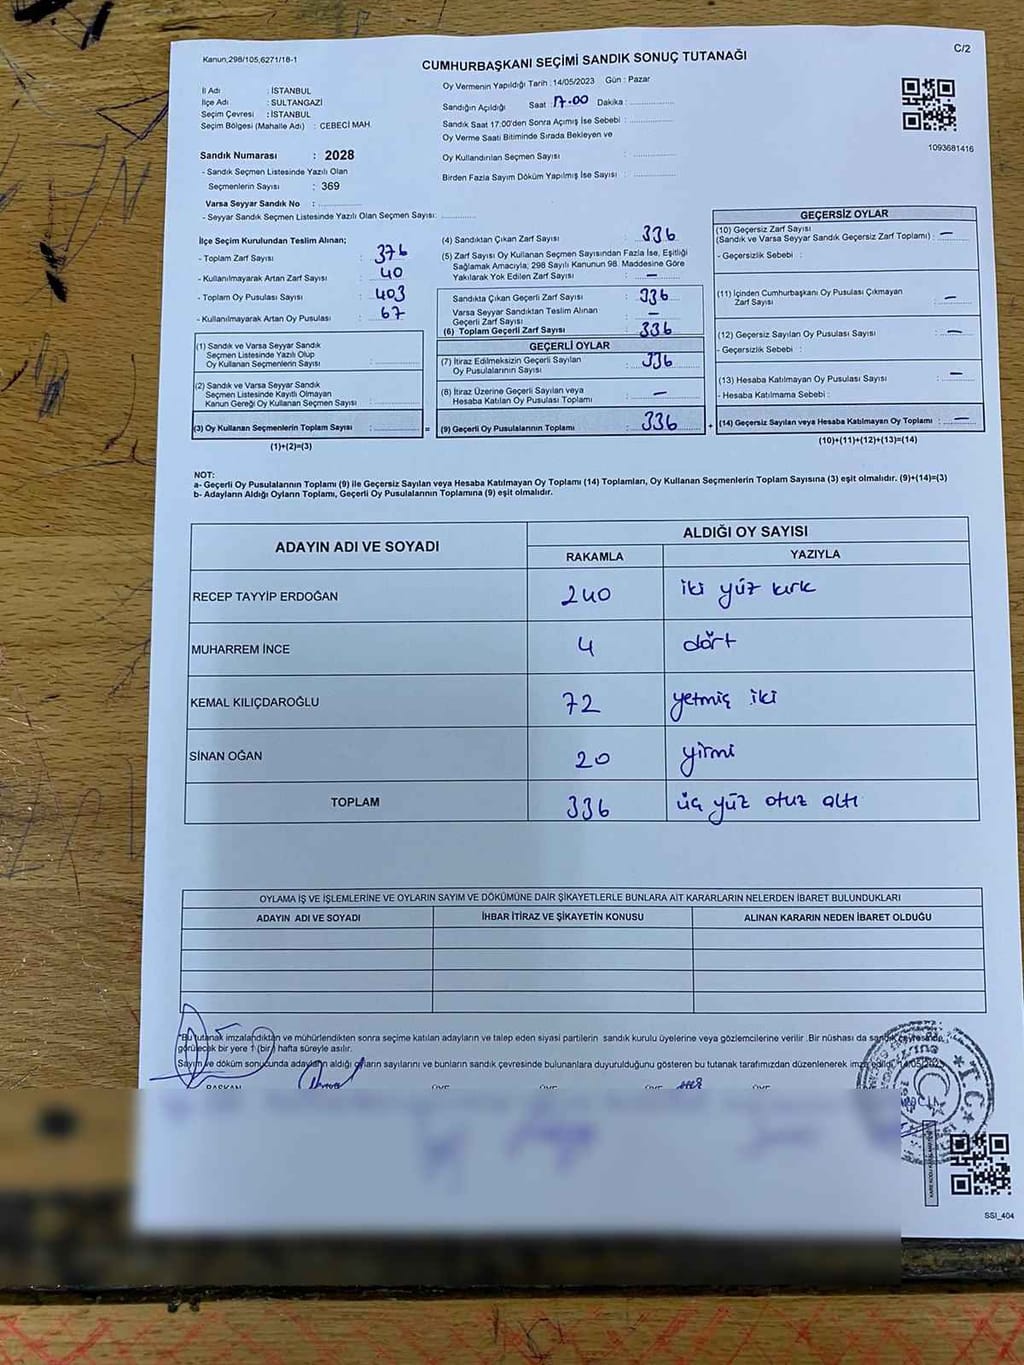 Kanun;298/105,6271/18-1
C/2
CUMHURBAŞKANI SEÇİMİ SANDIK SONUÇ TUTANAĞI
İl Adı : İSTANBUL
İlçe Adı : SULTANGAZİ
Seçim Çevresi : İSTANBUL
Seçim Bölgesi (Mahalle Adı) : CEBECİ MAH.
Sandık Numarası : 2028
- Sandık Seçmen Listesinde Yazılı Olan
Seçmenlerin Sayısı : 369
Varsa Seyyar Sandık No :
- Seyyar Sandık Seçmen Listesinde Yazılı Olan Seçmen Sayısı:
Oy Vermenin Yapıldığı Tarih : 14/05/2023 Gün : Pazar
Sandığın Açıldığı Saat : 17.00 Dakika :
Sandık Saat 17:00'den Sonra Açımış İse Sebebi :
Oy Verme Saati Bitiminde Sırada Bekleyen ve
Oy Kullandırılan Seçmen Sayısı :
Birden Fazla Sayım Döküm Yapılmış İse Sayısı :
1093681416
İlçe Seçim Kurulundan Teslim Alınan;
- Toplam Zarf Sayısı : 376
- Kullanılmayarak Artan Zarf Sayısı : 40
- Toplam Oy Pusulası Sayısı : 403
- Kullanılmayarak Artan Oy Pusulası : 67
(1) Sandık ve Varsa Seyyar Sandık
Seçmen Listesinde Yazılı Olup
Oy Kullanan Seçmenlerin Sayısı :
(2) Sandık ve Varsa Seyyar Sandık
Seçmen Listesinde Kayıtlı Olmayan
Kanun Gereği Oy Kullanan Seçmen Sayısı :
(3) Oy Kullanan Seçmenlerin Toplam Sayısı :
(1)+(2)=(3)
(4) Sandıktan Çıkan Zarf Sayısı : 336
(5) Zarf Sayısı Oy Kullanan Seçmen Sayısından Fazla İse, Eşitliği
Sağlamak Amacıyla; 298 Sayılı Kanunun 98. Maddesine Göre
Yakılarak Yok Edilen Zarf Sayısı : —
Sandıkta Çıkan Geçerli Zarf Sayısı : 336
Varsa Seyyar Sandıktan Teslim Alınan
Geçerli Zarf Sayısı : —
(6) Toplam Geçerli Zarf Sayısı : 336
GEÇERLİ OYLAR
(7) İtiraz Edilmeksizin Geçerli Sayılan
Oy Pusulalarının Sayısı : 336
(8) İtiraz Üzerine Geçerli Sayılan veya
Hesaba Katılan Oy Pusulası Toplamı : —
= (9) Geçerli Oy Pusulalarının Toplamı : 336
GEÇERSİZ OYLAR
(10) Geçersiz Zarf Sayısı
(Sandık ve Varsa Seyyar Sandık Geçersiz Zarf Toplamı) : —
- Geçersizlik Sebebi :
(11) İçinden Cumhurbaşkanı Oy Pusulası Çıkmayan
Zarf Sayısı : —
(12) Geçersiz Sayılan Oy Pusulası Sayısı : —
- Geçersizlik Sebebi :
(13) Hesaba Katılmayan Oy Pusulası Sayısı : —
- Hesaba Katılmama Sebebi :
+ (14) Geçersiz Sayılan veya Hesaba Katılmayan Oy Toplamı : —
(10)+(11)+(12)+(13)=(14)
NOT:
a- Geçerli Oy Pusulalarının Toplamı (9) ile Geçersiz Sayılan veya Hesaba Katılmayan Oy Toplamı (14) Toplamları, Oy Kullanan Seçmenlerin Toplam Sayısına (3) eşit olmalıdır. (9)+(14)=(3)
b- Adayların Aldığı Oyların Toplamı, Geçerli Oy Pusulalarının Toplamına (9) eşit olmalıdır.
ADAYIN ADI VE SOYADI ALDIĞI OY SAYISI
RAKAMLA YAZIYLA
RECEP TAYYİP ERDOĞAN 240 iki yüz kırk
MUHARREM İNCE 4 dört
KEMAL KILIÇDAROĞLU 72 yetmiş iki
SİNAN OĞAN 20 yirmi
TOPLAM 336 üç yüz otuz altı
OYLAMA İŞ VE İŞLEMLERİNE VE OYLARIN SAYIM VE DÖKÜMÜNE DAİR ŞİKAYETLERLE BUNLARA AİT KARARLARIN NELERDEN İBARET BULUNDUKLARI
ADAYIN ADI VE SOYADI İHBAR İTİRAZ VE ŞİKAYETİN KONUSU ALINAN KARARIN NEDEN İBARET OLDUĞU
*Bu tutanak imzalandıktan ve mühürlendikten sonra seçime katılan adayların ve talep eden siyasi partilerin sandık kurulu üyelerine veya gözlemcilerine verilir .Bir nüshası da sandık çevresinde,
görülecek bir yere 1 (bir) hafta süreyle asılır.
Sayım ve döküm sonucunda adayların aldığı oyların sayılarını ve bunların sandık çevresinde bulunanlara duyurulduğunu gösteren bu tutanak tarafımızdan düzenlenerek imza edildi. 14/05/2023
BAŞKAN ÜYE ÜYE ÜYE ÜYE
T.C.
SSI_404